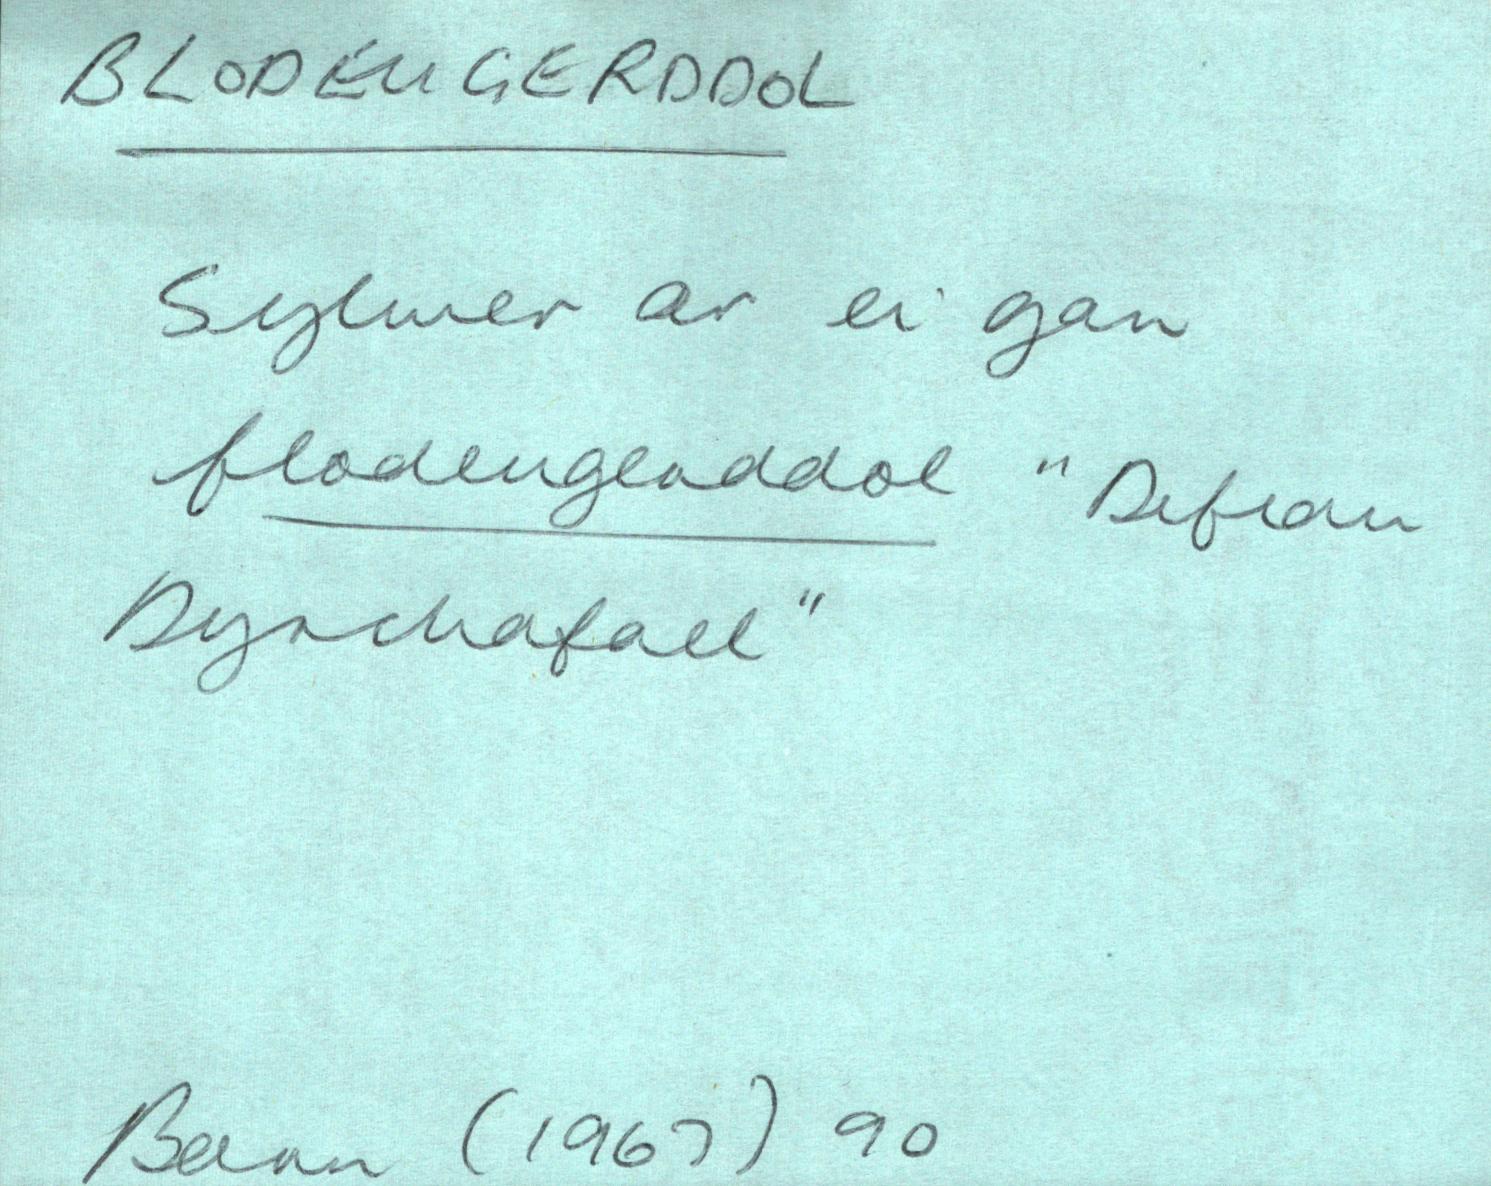 BLODEUGERDDOL
Sylwer ar ei gan
flodeugerddol "Defion
Dyrchafael"
Barn (1967) 90